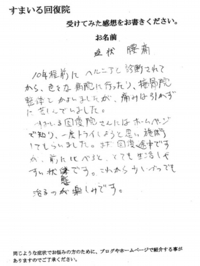 すまいる回復院
受けてみた感想をお書きください。
お名前
症状 腰痛
10年程前にヘルニアと診断されて
から、色々な病院に行ったり、接骨院
整体とかよいましたが、痛みは引かず
に苦しんでいました。
すまいる回復院さんにはホームページ
で知り、一度トライしようと思い検問
してもらいました。まだ回復途中ですが
前に比べると、とても生活しや
すい状態です。これからよくべっても
治るのが楽しみです。
同じような症状でお悩みの方のために、ブログやホームページで紹介する事が
ありますのでご了承ください。